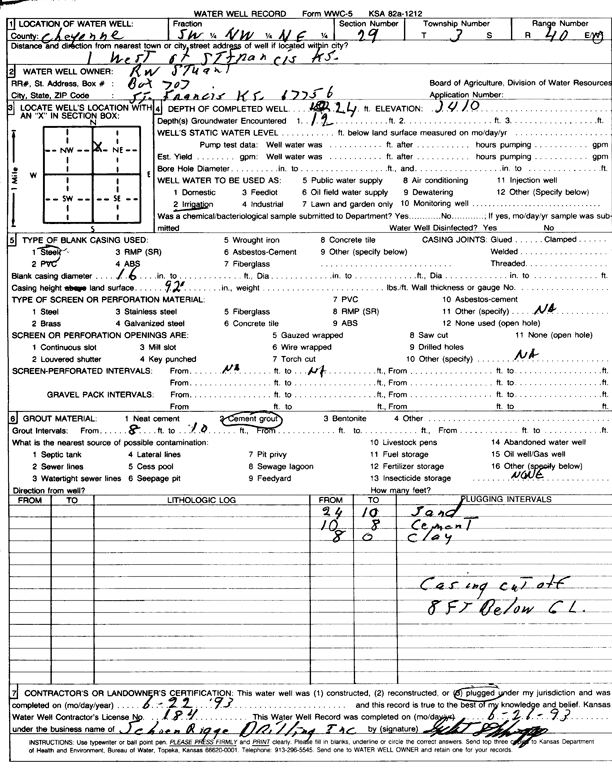 WATER WELL RECORD Form WWC-5 KSA 82a-1212
1 LOCATION OF WATER WELL: Fraction Section Number Township Number Range Number
County: Cheyenne SW ¼ NW ¼ NE ¼ 29 T 3 S R 40 E/W
Distance and direction from nearest town or city street address of well if located within city?
1 West of St Francis KS.
2 WATER WELL OWNER: RW Stuart
RR#, St. Address, Box # : Box 707 Board of Agriculture, Division of Water Resources
City, State, ZIP Code : St. Francis KS. 67756 Application Number:
3 LOCATE WELL'S LOCATION WITH AN "X" IN SECTION BOX:
N
NW NE
X
W E
SW SE
S
1 Mile
4 DEPTH OF COMPLETED WELL 24 ft. ELEVATION: 3410
Depth(s) Groundwater Encountered 1. 12 ft. 2. ft. 3. ft.
WELL'S STATIC WATER LEVEL ft. below land surface measured on mo/day/yr
Pump test data: Well water was ft. after hours pumping gpm
Est. Yield gpm: Well water was ft. after hours pumping gpm
Bore Hole Diameter in. to ft., and in. to ft.
WELL WATER TO BE USED AS: 5 Public water supply 8 Air conditioning 11 Injection well
1 Domestic 3 Feedlot 6 Oil field water supply 9 Dewatering 12 Other (Specify below)
2 Irrigation 4 Industrial 7 Lawn and garden only 10 Monitoring well
Was a chemical/bacteriological sample submitted to Department? Yes No ; If yes, mo/day/yr sample was sub-
mitted Water Well Disinfected? Yes No
5 TYPE OF BLANK CASING USED: 5 Wrought iron 8 Concrete tile CASING JOINTS: Glued Clamped
1 Steel 3 RMP (SR) 6 Asbestos-Cement 9 Other (specify below) Welded
2 PVC 4 ABS 7 Fiberglass Threaded
Blank casing diameter 16 in. to ft., Dia in. to ft., Dia in. to ft.
Casing height above land surface 92" in., weight lbs./ft. Wall thickness or gauge No.
TYPE OF SCREEN OR PERFORATION MATERIAL: 7 PVC 10 Asbestos-cement
1 Steel 3 Stainless steel 5 Fiberglass 8 RMP (SR) 11 Other (specify) NA
2 Brass 4 Galvanized steel 6 Concrete tile 9 ABS 12 None used (open hole)
SCREEN OR PERFORATION OPENINGS ARE: 5 Gauzed wrapped 8 Saw cut 11 None (open hole)
1 Continuous slot 3 Mill slot 6 Wire wrapped 9 Drilled holes
2 Louvered shutter 4 Key punched 7 Torch cut 10 Other (specify) NA
SCREEN-PERFORATED INTERVALS: From NA ft. to NA ft., From ft. to ft.
From ft. to ft., From ft. to ft.
GRAVEL PACK INTERVALS: From ft. to ft., From ft. to ft.
From ft. to ft., From ft. to ft.
6 GROUT MATERIAL: 1 Neat cement 2 Cement grout 3 Bentonite 4 Other
Grout Intervals: From 8 ft. to 10 ft., From ft. to ft., From ft. to ft.
What is the nearest source of possible contamination: 10 Livestock pens 14 Abandoned water well
1 Septic tank 4 Lateral lines 7 Pit privy 11 Fuel storage 15 Oil well/Gas well
2 Sewer lines 5 Cess pool 8 Sewage lagoon 12 Fertilizer storage 16 Other (specify below)
3 Watertight sewer lines 6 Seepage pit 9 Feedyard 13 Insecticide storage NONE
Direction from well? How many feet?
FROM TO LITHOLOGIC LOG FROM TO PLUGGING INTERVALS
24 10 Sand
10 8 Cement
8 0 Clay
Casing cut off
8 FT Below GL.
7 CONTRACTOR'S OR LANDOWNER'S CERTIFICATION: This water well was (1) constructed, (2) reconstructed, or (3) plugged under my jurisdiction and was
completed on (mo/day/year) 6-22-93 and this record is true to the best of my knowledge and belief. Kansas
Water Well Contractor's License No. 184 This Water Well Record was completed on (mo/day/yr) 6-26-93
under the business name of Schoenrogge Drilling Inc by (signature)
INSTRUCTIONS: Use typewriter or ball point pen. PLEASE PRESS FIRMLY and PRINT clearly. Please fill in blanks, underline or circle the correct answers. Send top three copies to Kansas Department
of Health and Environment, Bureau of Water, Topeka, Kansas 66620-0001. Telephone: 913-296-5545. Send one to WATER WELL OWNER and retain one for your records.